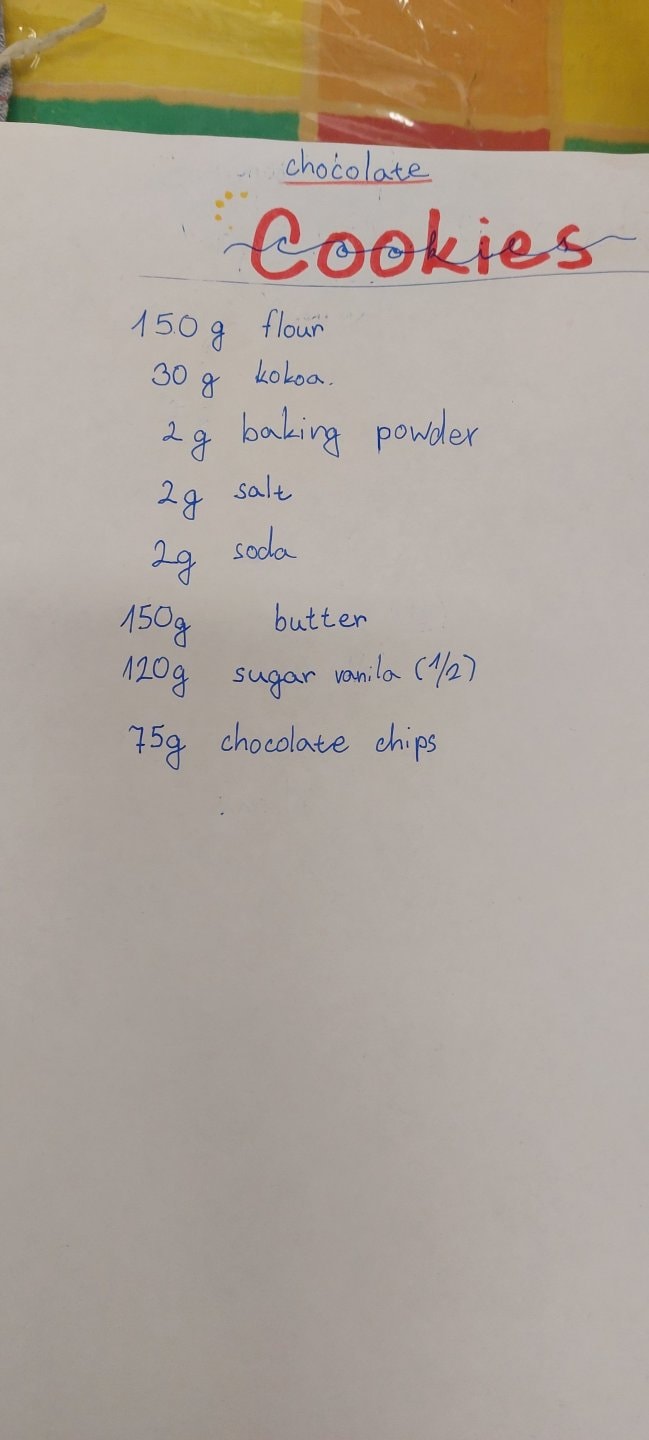 chocolate
Cookies
150 g flour
30 g kokoa.
2g baking powder
2g salt
2g soda
150g butter
120g sugar vanila (1/2)
75g chocolate chips